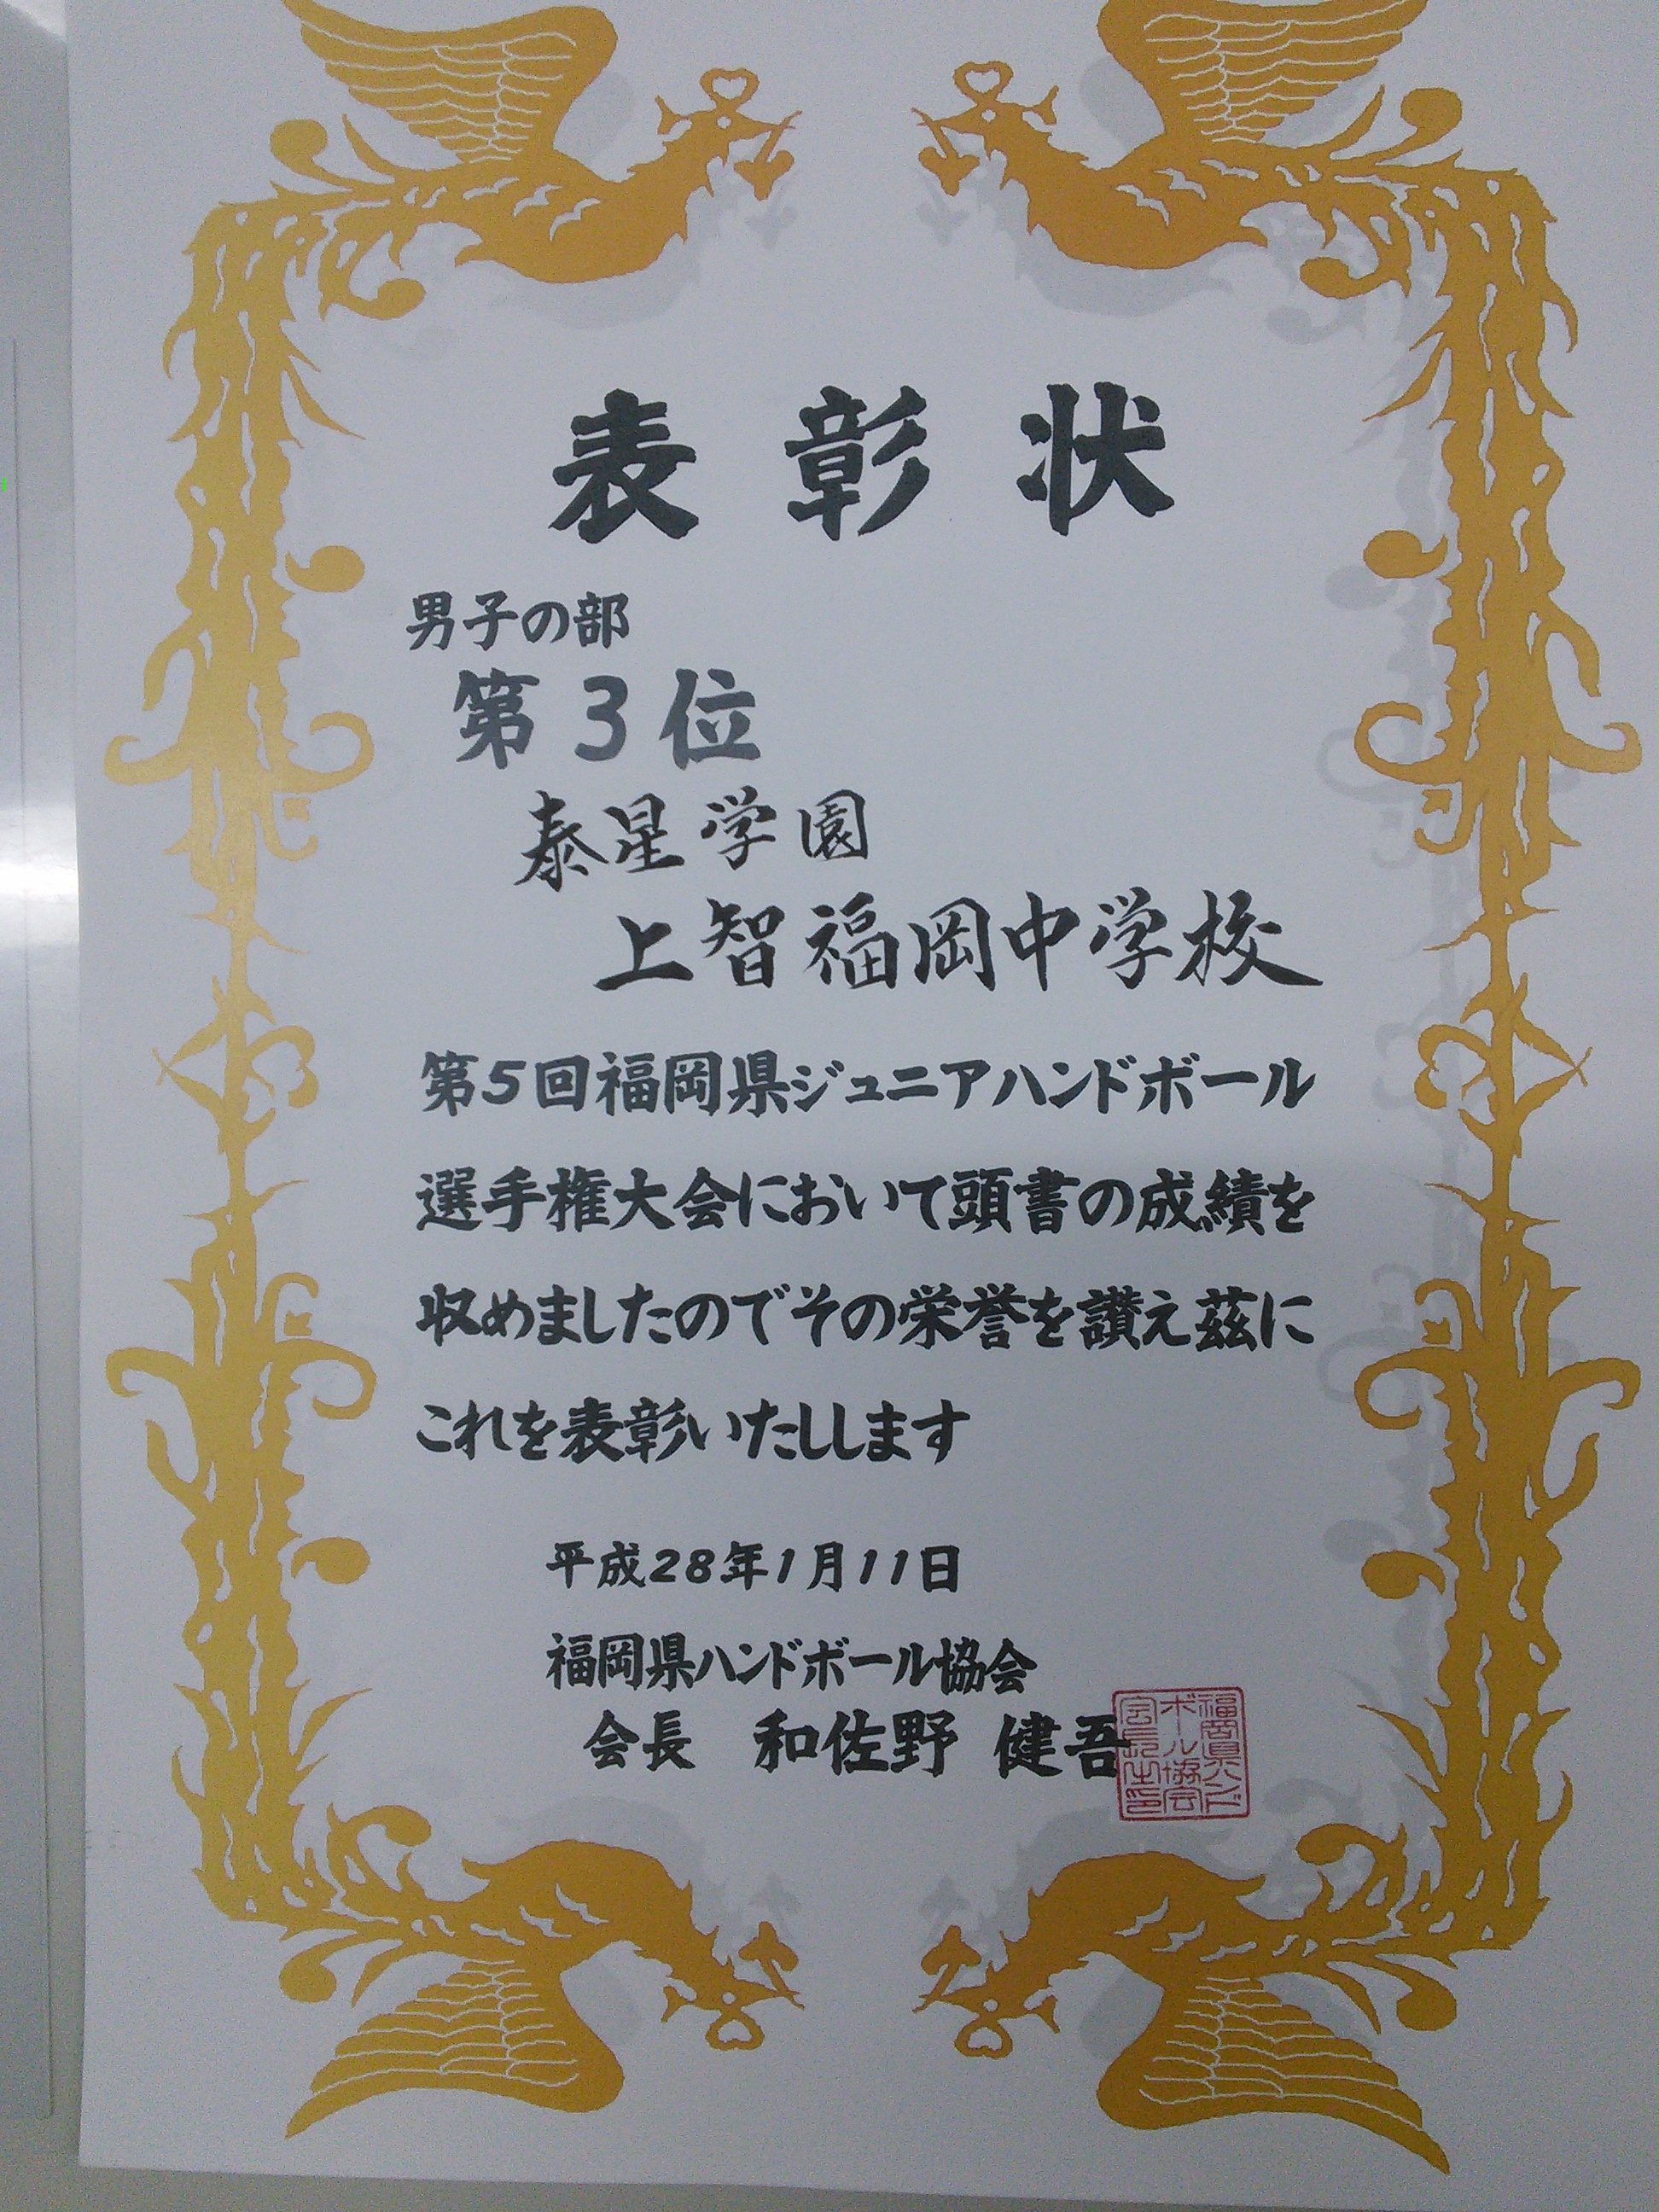 表彰状
男子の部
第3位
泰星学園
上智福岡中学校
第5回福岡県ジュニアハンドボール
選手権大会において頭書の成績を
収めましたのでその栄誉を讃え茲に
これを表彰いたしします
平成28年1月11日
福岡県ハンドボール協会
会長 和佐野 健吾
福岡県ハンド
ボール協会
会長之印